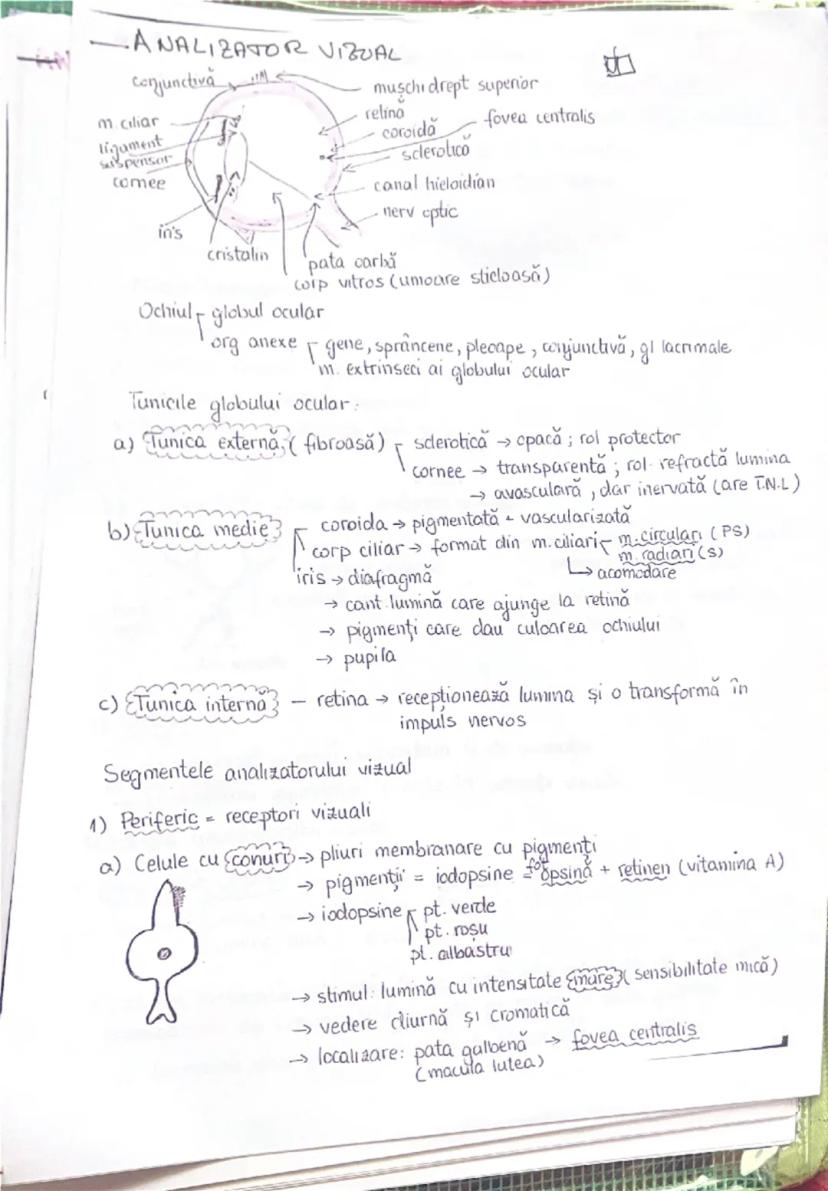 ANALIZATOR VIZUAL
conjunctivă
mușchi drept superior
retină
fovea centralis
m. ciliar
coroidă
ligament
suspensor
sclerotică
cornee
canal hieloidian
nerv optic
iris
cristalin
pata oarbă
corp vitros (umoare sticloasă)
Ochiul globul ocular
org anexe gene, sprâncene, pleoape, conjunctivă, gl lacrimale
m. extrinseci ai globului ocular
Tunicile globului ocular:
a) Tunica externă (fibroasă) sclerotică → opacă; rol protector
cornee → transparentă; rol refractă lumina
→ avasculară, dar inervată (are T.N.L)
b) Tunica medie coroida → pigmentată + vascularizată
corp ciliar → format din m. ciliari m. circulari (PS)
m. radiari (S)
iris → diafragmă → acomodare
→ cant. lumină care ajunge la retină
→ pigmenți care dau culoarea ochiului
→ pupila
c) Tunica internă — retina → recepționează lumina și o transformă în
impuls nervos
Segmentele analizatorului vizual
1) Periferic = receptori vizuali
a) Celule cu conuri → pliuri membranare cu pigmenți
→ pigmenții = iodopsine = fotopsină + retinen (vitamina A)
→ iodopsine pt. verde
pt. roșu
pt. albastru
→ stimul: lumină cu intensitate mare (sensibilitate mică)
→ vedere diurnă și cromatică
→ localizare: pata galbenă → fovea centralis
(macula lutea)